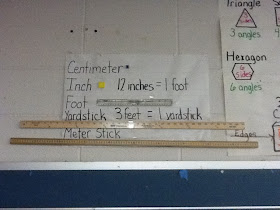 Centimeter
Inch 12 inches = 1 foot
Foot
Yardstick 3 feet = 1 yardstick
Meter Stick
Triangle
3 angles
Hexagon
6 sides
6 angles
Edges